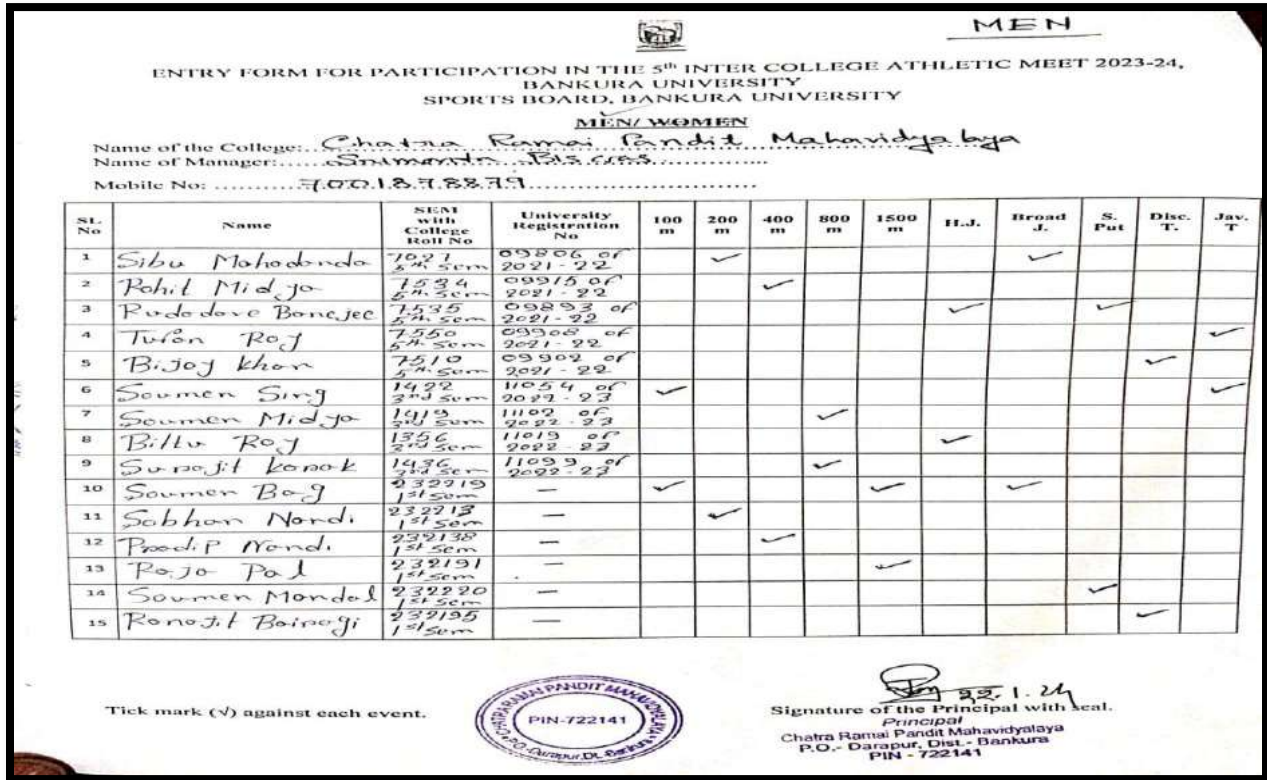 MEN
ENTRY FORM FOR PARTICIPATION IN THE 5th INTER COLLEGE ATHLETIC MEET 2023-24,
BANKURA UNIVERSITY
SPORTS BOARD, BANKURA UNIVERSITY
MEN/ WOMEN
Name of the College: Chatra Ramai Pandit Mahavidyalaya
Name of Manager: Srimanta Biswas
Mobile No: 7001878879
SL. No Name SEM with College Roll No University Registration No 100 m 200 m 400 m 800 m 1500 m H.J. Broad J. S. Put Disc. T. Jav. T
1 Sibu Mahadanda 7027 5th Sem 09806 of 2021-22 ✓ ✓
2 Rohit Midya 7534 5th Sem 09915 of 2021-22 ✓
3 Rudadave Banejee 7535 5th Sem 09893 of 2021-22 ✓ ✓
4 Tufan Roy 7550 5th Sem 09908 of 2021-22 ✓
5 Bijoy khan 7510 5th Sem 09902 of 2021-22 ✓
6 Soumen Sing 1422 3rd Sem 11054 of 2022-23 ✓ ✓
7 Soumen Midya 1419 3rd Sem 11102 of 2022-23 ✓
8 Biltu Roy 1356 3rd Sem 11019 of 2022-23 ✓
9 Surojit konak 1436 3rd Sem 11099 of 2022-23 ✓
10 Soumen Bag 232219 1st Sem — ✓ ✓ ✓
11 Sobhan Nandi 232213 1st Sem — ✓
12 Pradip Nandi 232138 1st Sem — ✓
13 Raja Pal 232191 1st Sem — ✓
14 Soumen Mondal 232220 1st Sem — ✓
15 Ranajit Bairagi 232195 1st Sem — ✓
22.1.24
Tick mark (√) against each event.
CHATRA RAMAI PANDIT MAHAVIDYALAYA
PIN-722141
P.O.-Darapur, Dt.-Bankura
Signature of the Principal with seal.
Principal
Chatra Ramai Pandit Mahavidyalaya
P.O.- Darapur, Dist.- Bankura
PIN - 722141